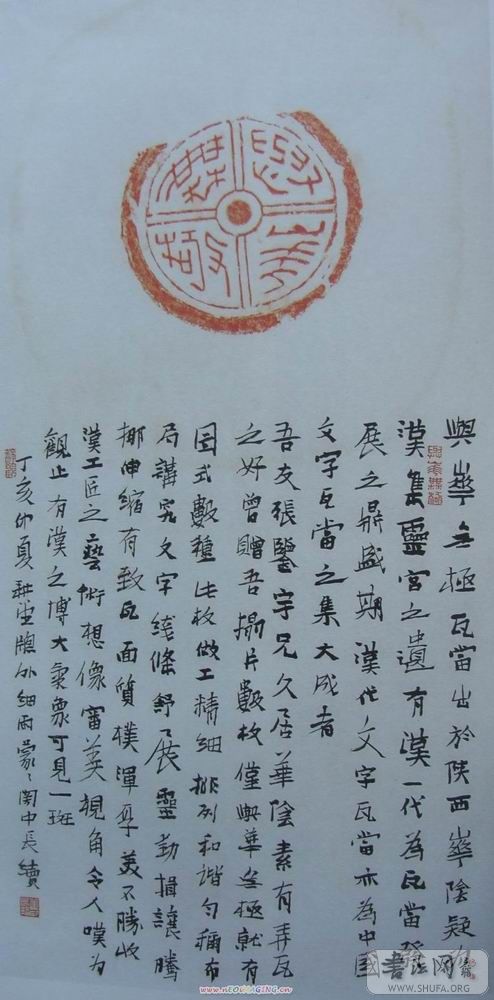 與華無極
與崋无極瓦當出於陝西崋陰疑
漢集靈宮之遺有漢一代為瓦當發
展之鼎盛期漢代文字瓦當亦為中國
文字瓦當之集大成者
吾友張鑒宇兄久居華陰素有弄瓦
之好曾贈吾搨片數枚僅與華无極就有
图式數種此枚做工精細排列和諧勻稱布
局講究文字线條舒展靈動揖讓騰
挪伸縮有致瓦面質樸渾厚美不勝收
漢工匠之藝術想像審美視角令人嘆為
觀止有漢之博大氣象可見一斑
丁亥仲夏耕堂牕外細雨蒙〻
書法网
WWW.SHUFA.ORG
www.neoimaging.cn